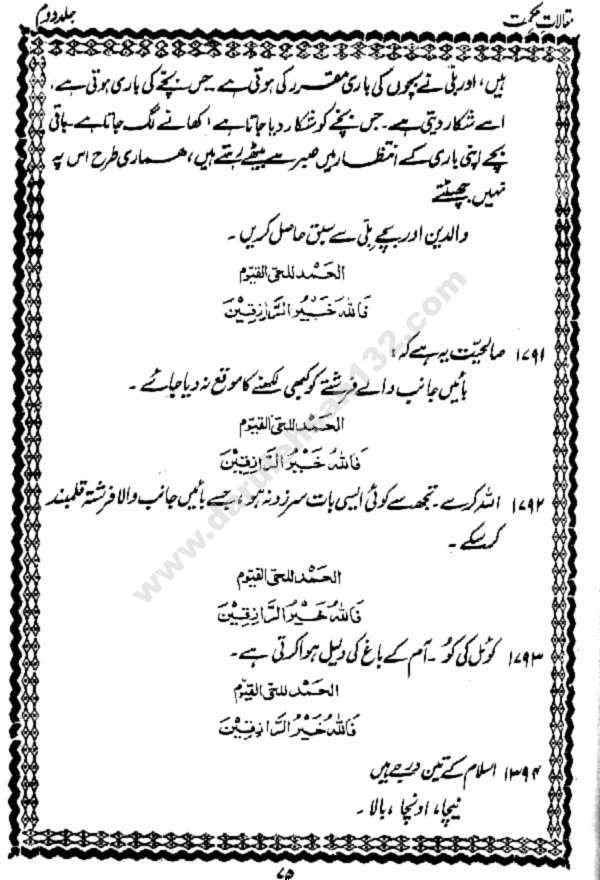 مقالاتِ حکمت
جلد دوم
ہیں، اور بلّی نے بچوں کی باری مقرر کی ہوتی ہے۔ جس بچّے کی باری ہوتی ہے،
اسے شکار دیتی ہے۔ جس بچّے کو شکار دیا جاتا ہے، کھانے لگ جاتا ہے۔ باقی
بچّے اپنی باری کے انتظار میں صبر سے بیٹھے رہتے ہیں، ھماری طرح اس پہ
نہیں جھپٹتے
والدین اور بچے بلّی سے سبق حاصل کریں۔
الحمد للحی القیّوم
فَاللّٰهُ خَیْرُ الرَّازِقِیْنَ
۱۷۹۱ صالحیّت یہ ہے کہ:
بائیں جانب والے فرشتے کو کبھی لکھنے کا موقع نہ دیا جائے۔
الحمد للحی القیّوم
فَاللّٰهُ خَیْرُ الرَّازِقِیْنَ
۱۷۹۲ اللہ کرے۔ تجھ سے کوئی ایسی بات سرزد نہ ہو، جسے بائیں جانب والا فرشتہ قلمبند
کر سکے۔
الحمد للحی القیّوم
فَاللّٰهُ خَیْرُ الرَّازِقِیْنَ
۱۷۹۳ کوئل کی کُو۔ آم کے باغ کی دلیل ہوا کرتی ہے۔
الحمد للحی القیّوم
فَاللّٰهُ خَیْرُ الرَّازِقِیْنَ
۱۳۹۴ اسلام کے تین درجے ہیں
نیچا، اونچا، بالا۔
۷۵